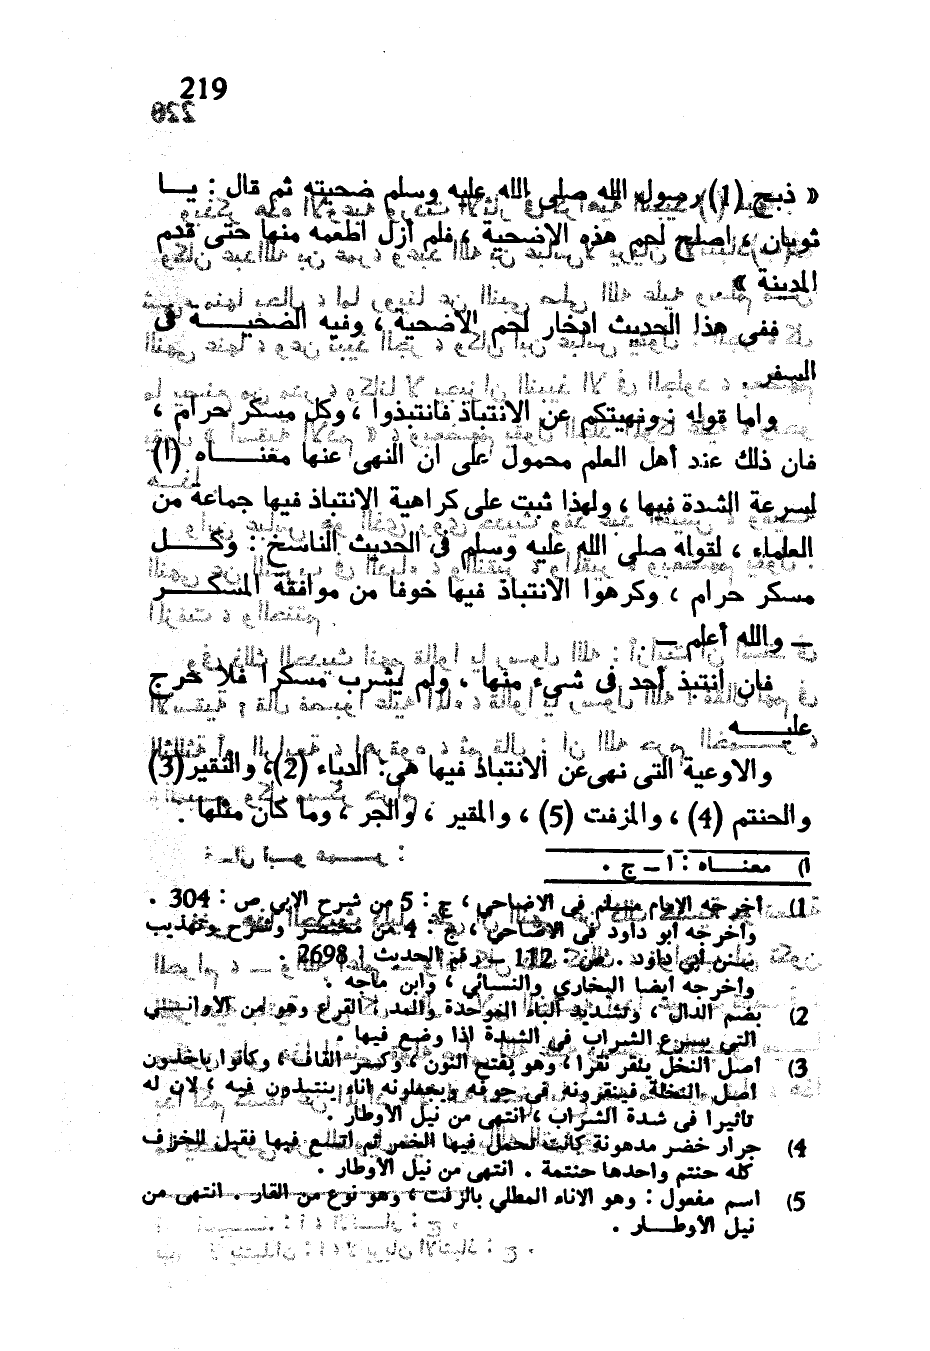 219
« ذبح (1) رسول الله صلى الله عليه وسلم ضحيته ثم قال : يـــا
ثوبان ، اصلح لحم هذه الاضحية ، فلم أزل اطعمه منها حتى قدم
المدينة »
ففى هذا الحديث ادخار لحم الاضحية ، وفيه الضحيــــة فى
السفر
واما قوله : ونهيتكم عن الانتباذ فانتبذوا ، وكل مسكر حرام ،
فان ذلك عند أهل العلم محمول على ان النهى عنها معنـــاه (أ)
لسرعة الشدة فيها ، ولهذا ثبت على كراهية الانتباذ فيها جماعة من
العلماء ، لقوله صلى الله عليه وسلم فى الحديث الناسخ : وكـــل
مسكر حرام ، وكرهوا الانتباذ فيها خوفا من موافقة المسكـــر
ــ والله أعلم ــ
فان انتبذ أحد فى شىء منها ، ولم يشرب مسكرا فلا حرج
عليـــه
والاوعية التى نهى عن الانتباذ فيها هى: الدباء (2)، والنقير (3)
والحنتم (4) ، والمزفت (5) ، والمقير ، والجر ، وما كان مثلها .
أ) معنـــاه : ا ــ ج .
1) اخرجه الامام مسلم فى الاضاحي ، ج : 5 من شرح الابي ص : 304 .
واخرجه ابو داود فى الاضاحي ، ج : 4 من مختصر وشرح وتهذيب
سنن أبي داود . ص : 112 ــ رقم الحديث 2698 .
واخرجه ايضا البخاري والنسائي ، وابن ماجه .
2) بضم الدال ، وتشديد الباء الموحدة والمد ، القرع وهو من الاوانـــي
التي يسرع الشراب فى الشدة اذا وضع فيها .
3) اصل النخل ينقر نقرا ، وهو بفتح النون ، وكسر القاف ، وكانوا ياخذون
اصل النخلة فينقرونه فى جوفه ويجعلونه اناء ينتبذون فيه ، لان له
تاثيرا فى شدة الشراب ، انتهى من نيل الاوطار .
4) جرار خضر مدهونة كانت تحمل فيها الخمر ثم اتسع فيها فقيل للخزف
كله حنتم واحدها حنتمة . انتهى من نيل الاوطار .
5) اسم مفعول : وهو الاناء المطلي بالزفت ، وهو نوع من القار . انتهى من
نيل الاوطـــار .